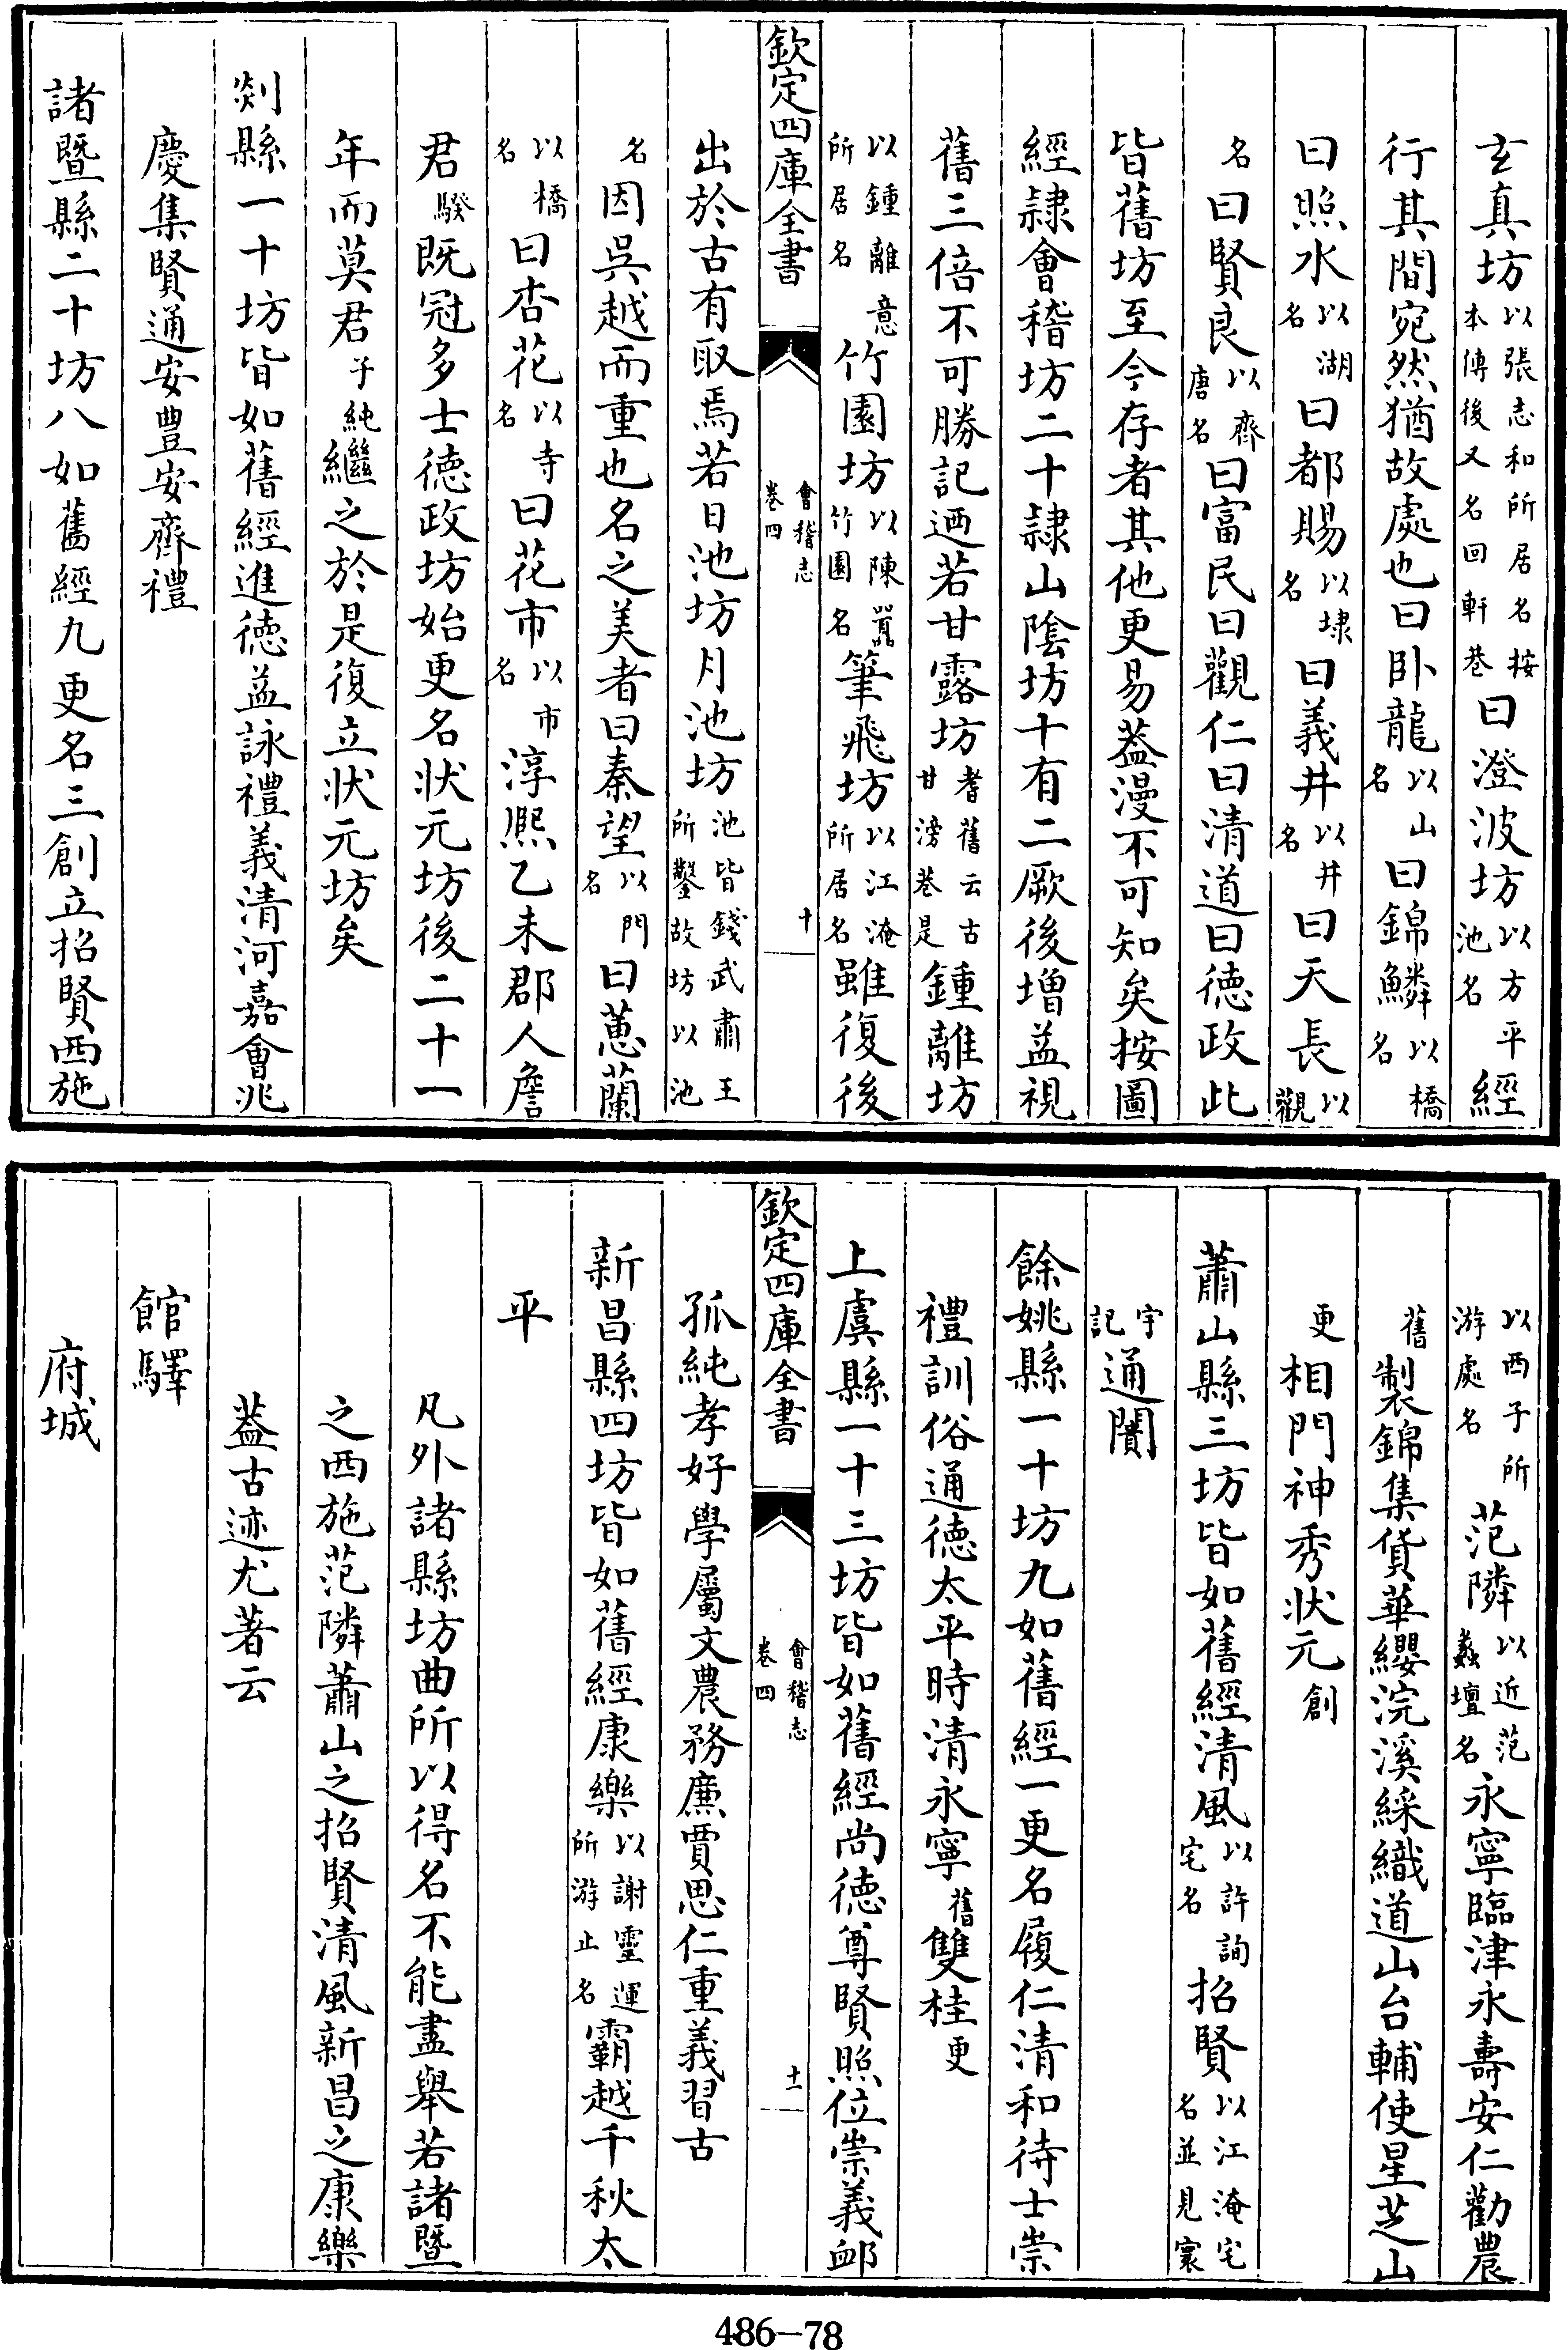 玄真坊以張志和所居名按本傳後又名回軒巷曰澄波坊以方平池名經
行其間宛然猶故處也曰卧龍以山名曰錦鱗以橋名
曰照水以湖名曰都賜以埭名曰義井以井名曰天長以觀
名曰賢良以齊唐名曰富民曰觀仁曰清道曰徳政此
皆舊坊至今存者其他更易葢漫不可知矣按圖
經隷會稽坊二十隷山隂坊十有二厥後増益視
舊三倍不可勝記迺若甘露坊耆舊云古甘滂巷是鍾離坊
以鍾離意所居名竹園坊以陳囂竹園名筆飛坊以江淹所居名雖復後
欽定四庫全書
會稽志
卷四
十
出於古有取焉若日池坊月池坊池皆錢武肅王所鑿故坊以池
名因吳越而重也名之美者曰秦望以門名曰蕙蘭
以橋名曰杏花以寺名曰花市以市名淳熈乙未郡人詹
君騤既冠多士徳政坊始更名狀元坊後二十一
年而莫君子純繼之於是復立狀元坊矣
剡縣一十坊皆如舊經進徳益詠禮義清河嘉會兆
慶集賢通安豊安齊禮
諸暨縣二十坊八如舊經九更名三創立招賢西施
以西子所游處名范隣以近范蠡壇名永寧臨津永壽安仁勸農
舊製錦集貨華纓浣溪綵織道山台輔使星芝山
更相門神秀狀元創
蕭山縣三坊皆如舊經清風以許詢宅名招賢以江淹宅名並見寰
宇記通闤
餘姚縣一十坊九如舊經一更名履仁清和待士崇
禮訓俗通徳太平時清永寧舊雙桂更
上虞縣一十三坊皆如舊經尚徳尊賢照位崇義卹
欽定四庫全書
會稽志
卷四
十一
孤純孝好學屬文農務㢘賈思仁重義習古
新昌縣四坊皆如舊經康樂以謝靈運所游止名霸越千秋太
平
凡外諸縣坊曲所以得名不能盡舉若諸暨
之西施范隣蕭山之招賢清風新昌之康樂
葢古迹尤著云
館驛
府城
486-78